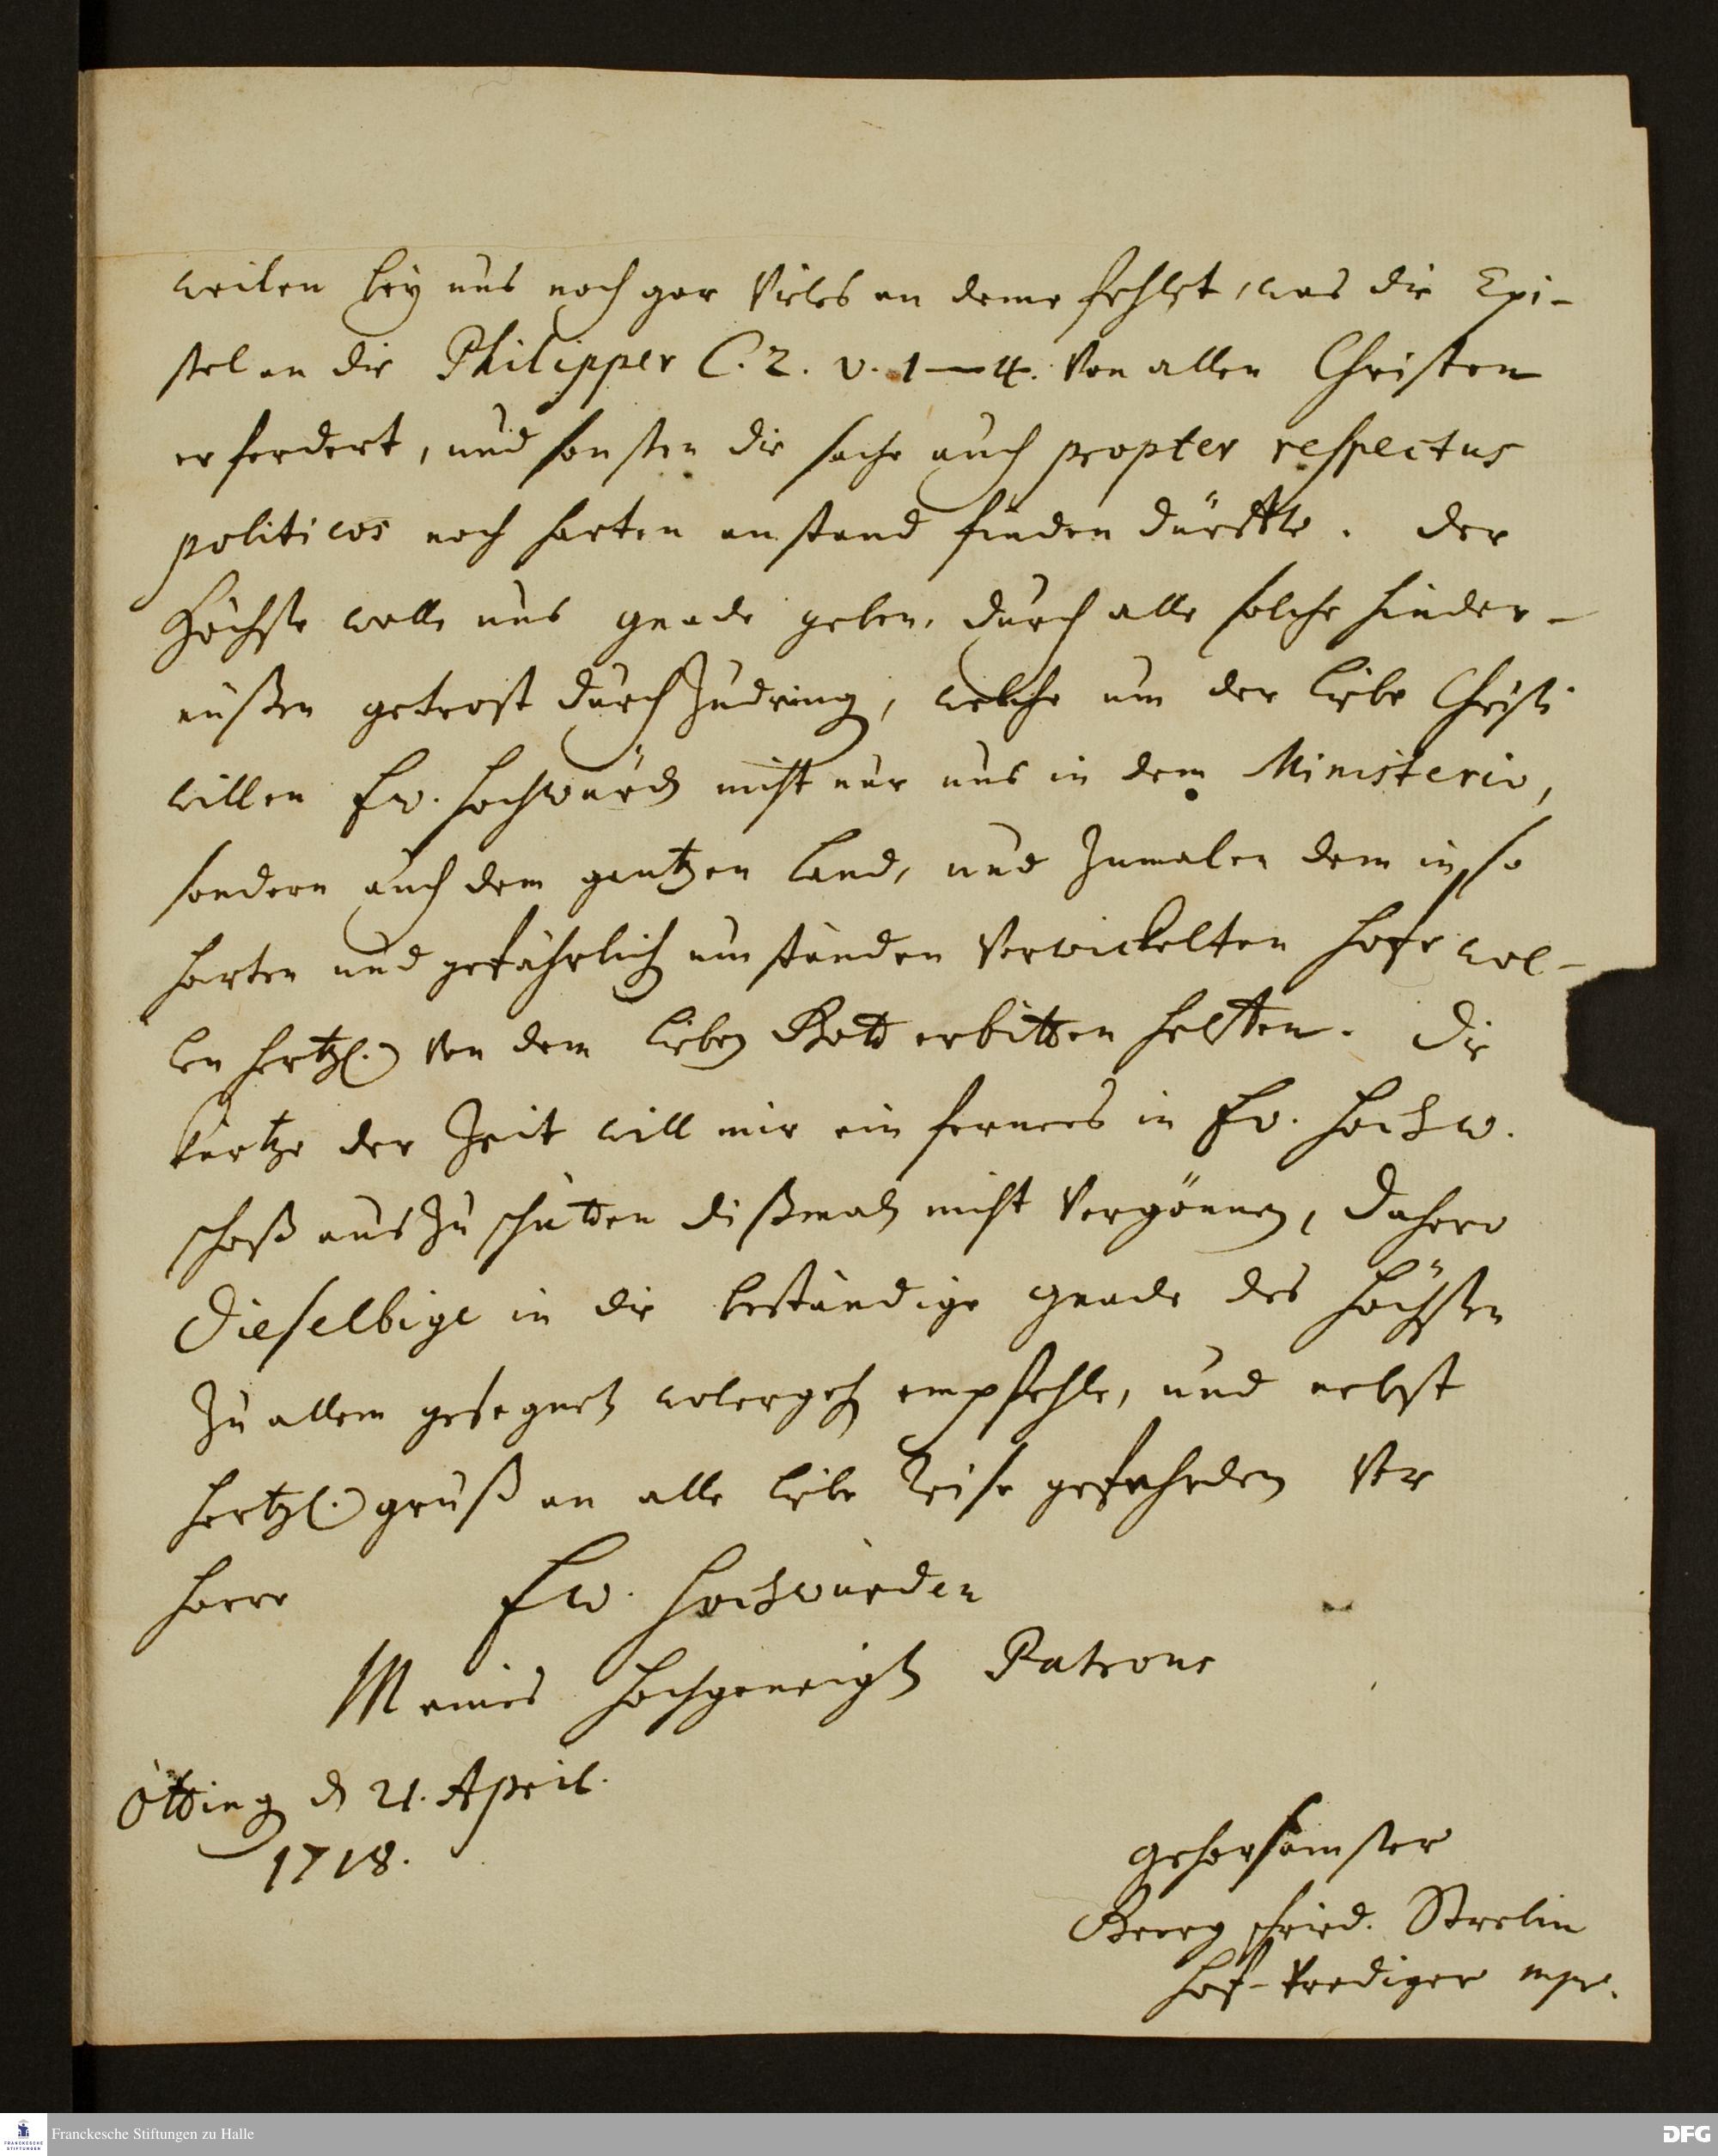 weilen bey uns noch gar Vieles an deme fehlet, was die Epi-
stel an die Philipper C. 2. v. 1—4. Von allen Christen
erfordert, und sonsten die sache auch propter respectus
politicos noch harten anstand finden dürffte. Der
Höchste wolle uns gnade geben, durch alle solche hinder-
nüßen getrost durchzudring, welche um der liebe Christi
willen Ew. Hochwürd nicht nur uns in dem Ministerio,
sondern auch dem gantzen Land, und zumalen dem in so
harten und gefährlich umständen Verwickelten Hofe wol-
len hertzl. von dem lieben Gott erbitten helffen. Die
Kürtze der Zeit will mir ein ferners in Ew. Hochw.
schoß auszuschütten dißmal nicht Vergönnen, Dahero
Dieselbige in die beständige gnade des Höchsten
zu allem gesegneten wolergehen empfehle, und nebst
hertzl. gruß an alle liebe Reise gefehrden Ver
harre Ew. Hochwürden
Meines Hochgeneigten Patrons
Ötting d 21. April.
1718.
gehorsamster
Georg Fried. Strelin
Hof-Prediger mpr.